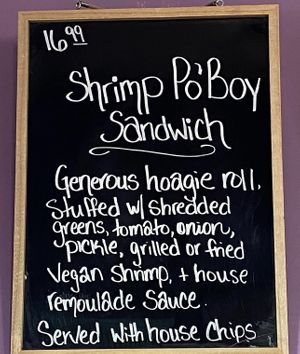 16.99
Shrimp Po'Boy
Sandwich
Generous hoagie roll,
Stuffed w/ shredded
greens, tomato, onion,
pickle, grilled or fried
Vegan Shrimp, + house
remoulade sauce.
Served with house chips